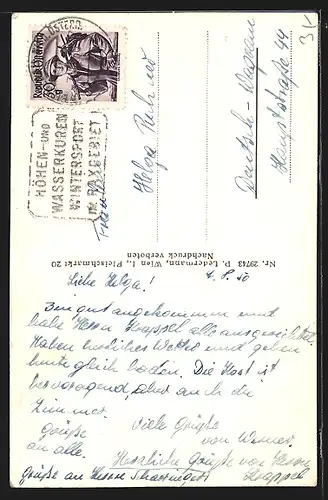 REPUBLIK ÖSTERREICH
HÖHEN- UND
WASSERKUREN
WINTERSPORT
IM RAXGEBIET
Helga
Deutsch-Wagram
Hauptstraße 44
Nr. 29743 P. Ledermann, Wien I., Fleischmarkt 20
Nachdruck verboten
Liebe Helga!
Bin gut angekommen und
habe Herrn alles ausgerichtet.
Haben herrliches Wetter und gehen
heute gleich baden. Die Kost ist
hervorragend, aber auch die
Zimmer.
Viele Grüße
von Werner.
Grüße
an alle.
Herzliche Grüße von Herrn
Grüße an Herrn